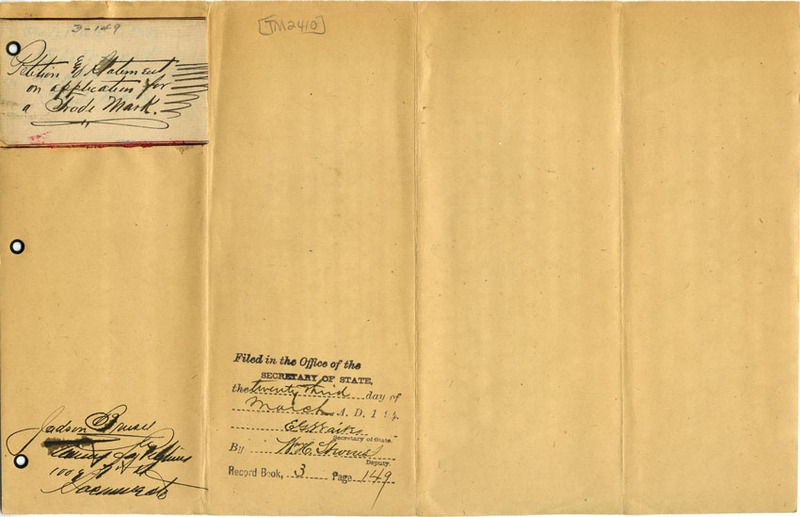 3-149
[TM2410]
Petition & Statement
on application for
a Trade Mark.
Filed in the Office of the
SECRETARY OF STATE,
the twenty third day of
March A. D. 1
Secretary of State.
By W. H.
Deputy.
Record Book, 3 Page 149
Judson
1009
Sacramento